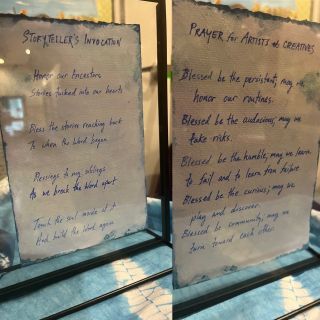 STORYTELLER'S INVOCATION
Honor our Ancestors
Stories tucked into our hearts
Bless the stories reaching back
To when the Word began
Blessings to my siblings
As we break the Word apart
Touch the soul inside of it
And build the Word again
PRAYER for ARTISTS & CREATIVES
Blessed be the persistent; may we
honor our routines.
Blessed be the audacious; may we
take risks.
Blessed be the humble; may we learn
to fail and to learn from failure
Blessed be the curious; may we
play and discover.
Blessed be community; may we
turn toward each other.